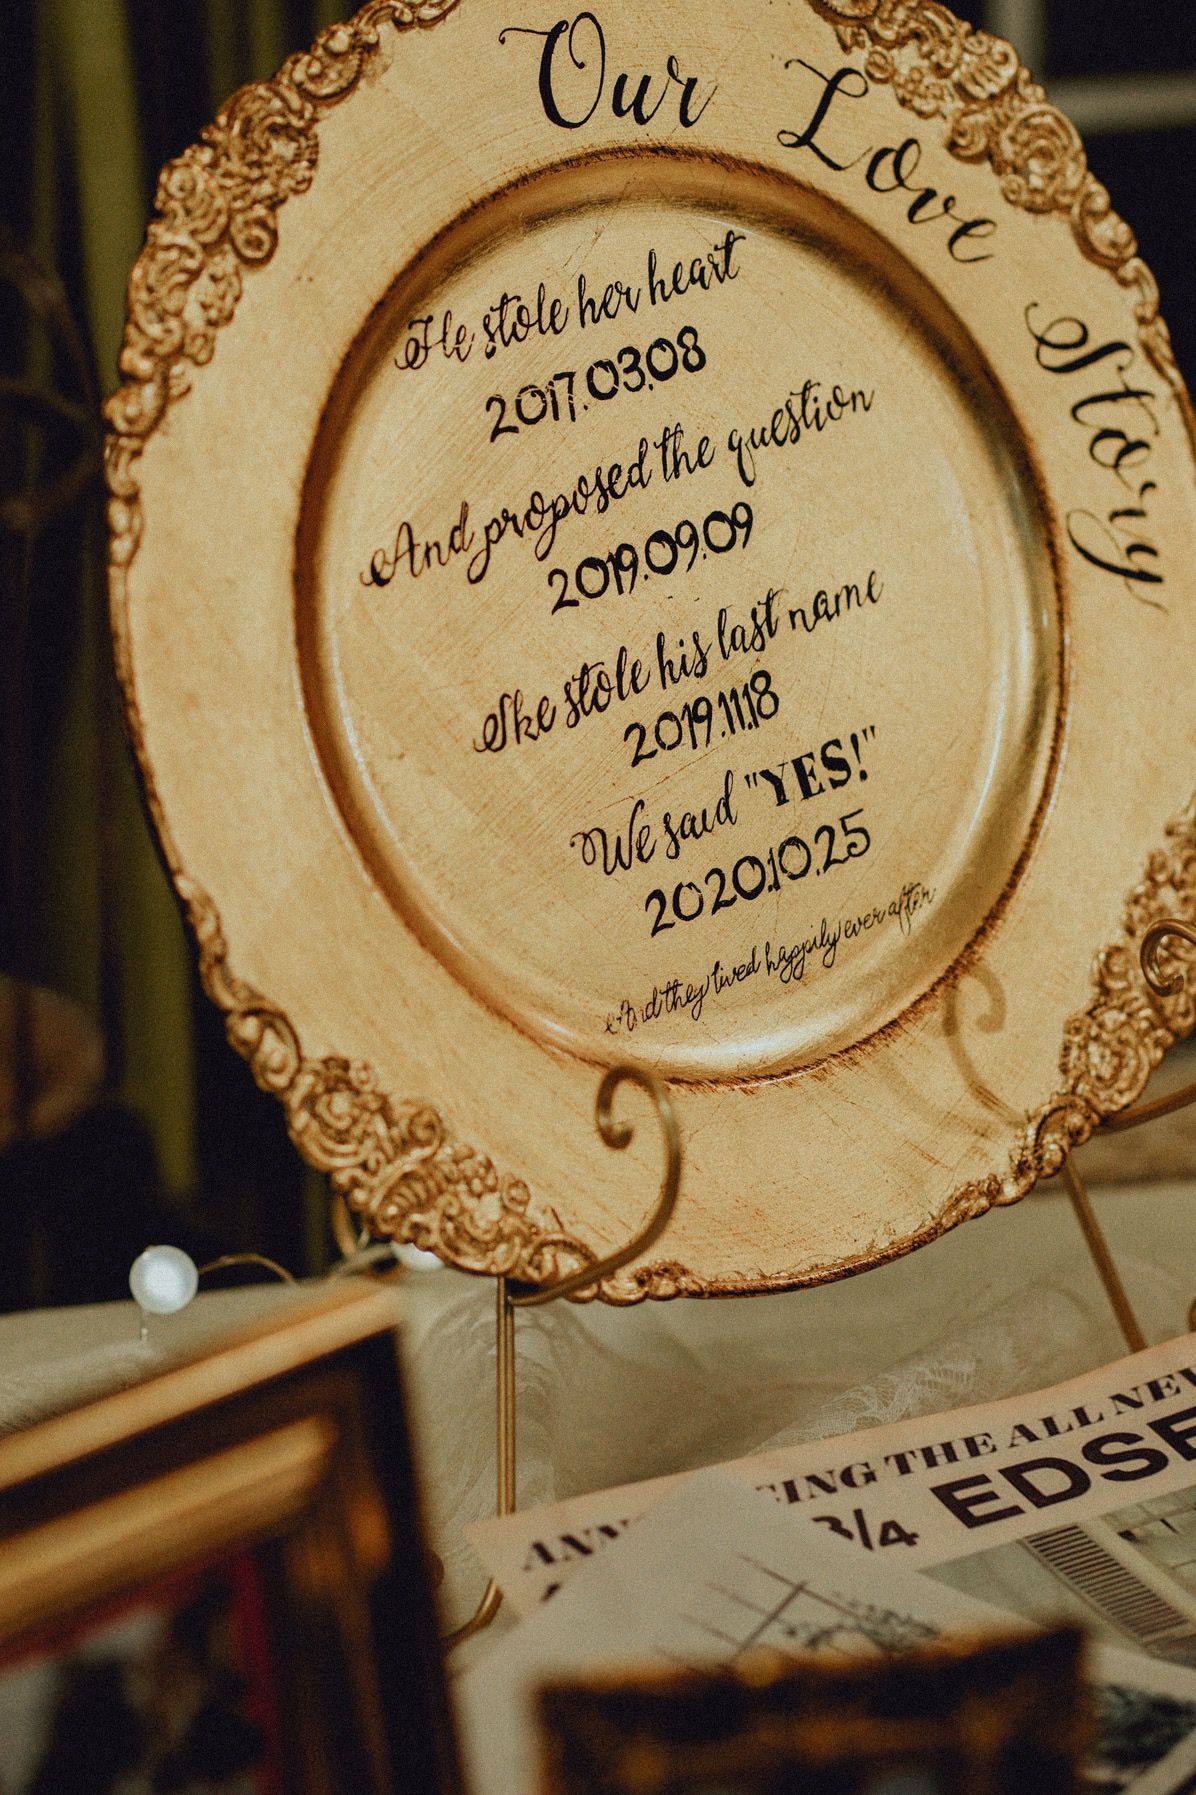 Our Love Story
He stole her heart
2017.03.08
And proposed the question
2019.09.09
She stole his last name
2019.11.18
We said "YES!"
2020.10.25
And they lived happily ever after
THE ALL
3/4 EDSE